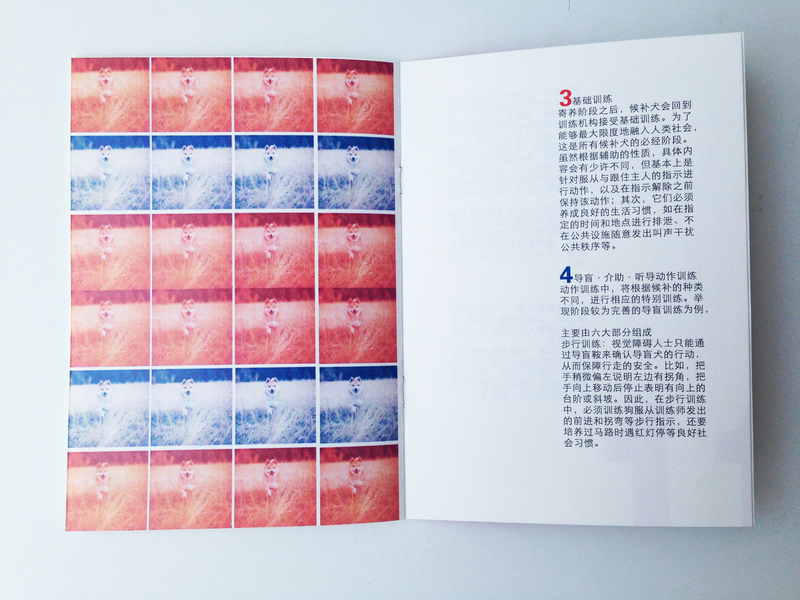 3基础训练
寄养阶段之后，候补犬会回到
训练机构接受基础训练。为了
能够最大限度地融人人类社会，
这是所有候补犬的必经阶段。
虽然根据辅助的性质，具体内
容会有少许不同，但基本上是
针对服从与跟住主人的指示进
行动作，以及在指示解除之前
保持该动作；其次，它们必须
养成良好的生活习惯，如在指
定的时间和地点进行排泄、不
在公共设施随意发出叫声干扰
公共秩序等。
4导盲·介助·听导动作训练
动作训练中，将根据候补的种类
不同，进行相应的特别训练。举
现阶段较为完善的导盲训练为例，
主要由六大部分组成
步行训练：视觉障碍人士只能通
过导盲鞍来确认导盲犬的行动，
从而保障行走的安全。比如，把
手稍微偏左说明左边有拐角，把
手向上移动后停止表明有向上的
台阶或斜坡。因此，在步行训练
中，必须训练狗服从训练师发出
的前进和拐弯等步行指示，还要
培养过马路时遇红灯停等良好社
会习惯。